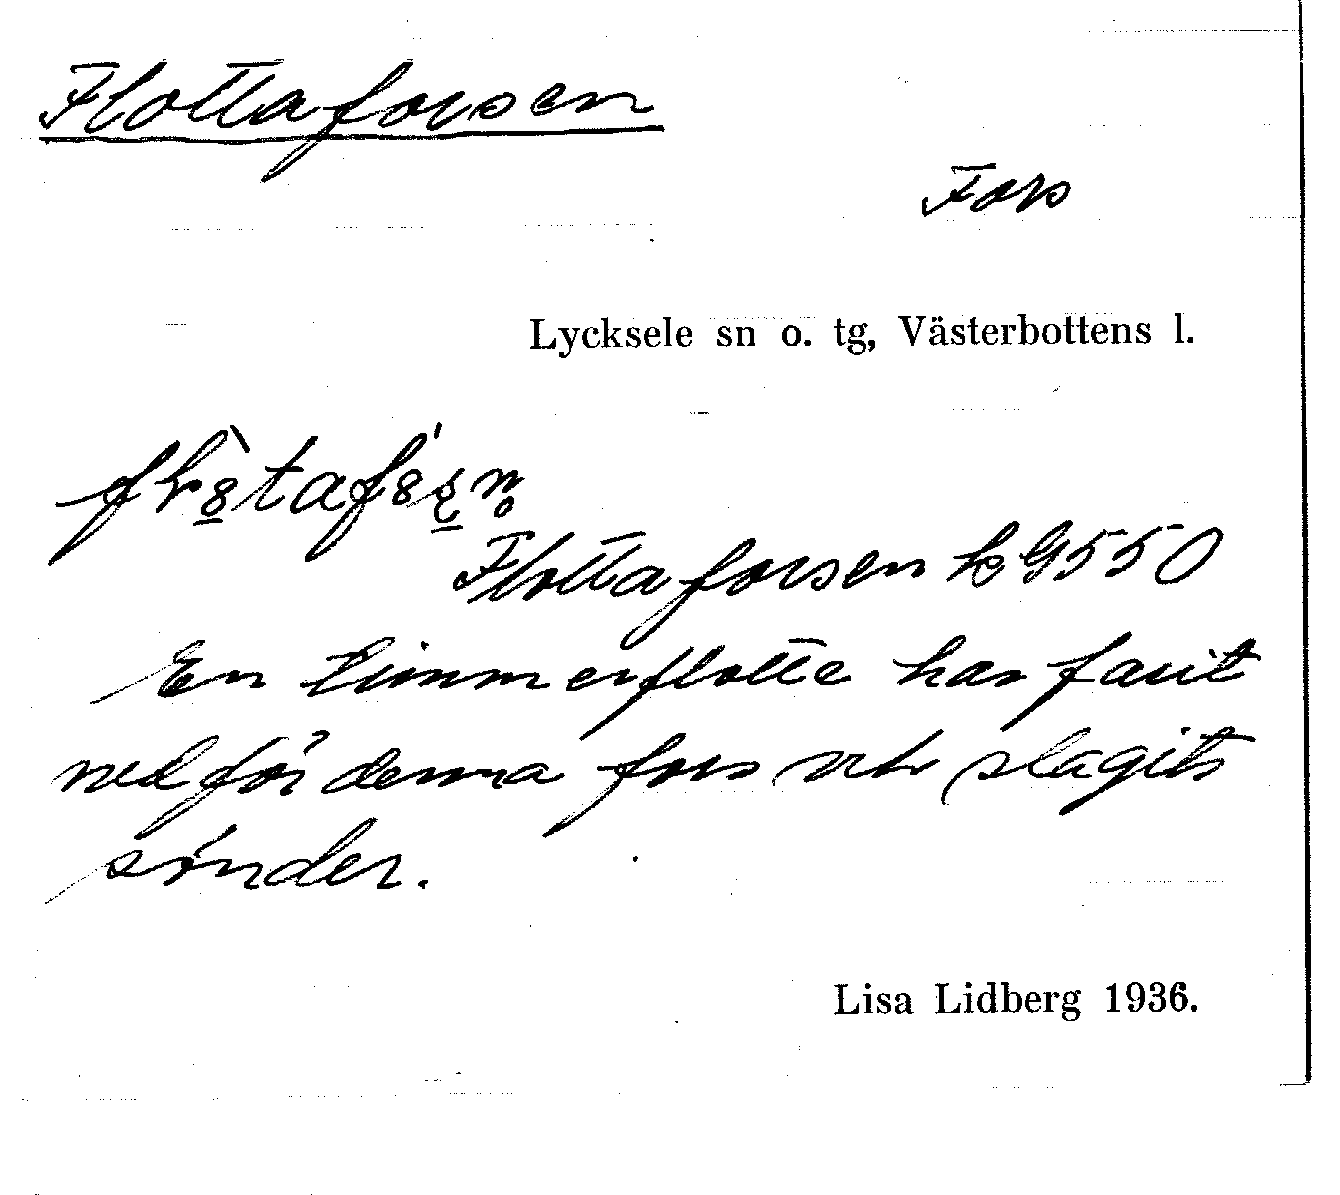 Flottaforsen
Fors
Lycksele sn o. tg, Västerbottens l.
Flottaforsen k G550
En timmerflotte har farit
ned för denna fors och slagits
sönder.
Lisa Lidberg 1936.